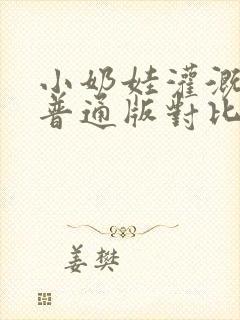 小奶娃灌溉
普通版對比
姜樊